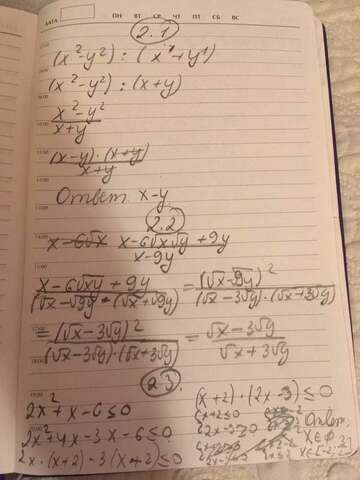 ДАТА ПН ВТ СР ЧТ ПТ СБ ВС
2.1
(x²-y²) : (x¹+y¹)
(x²-y²) : (x+y)
x²-y²
x+y
(x-y)·(x+y)
x+y
Ответ x-y
2.2
x-6√x x-6√x√y+9y
x-9y
x-6√xy+9y = (√x-9√y)²
(√x-√9y)·(√x+√9y) (√x-3√y)·(√x+3√y)
= (√x-3√y)² = √x-3√y
(√x-3√y)·(√x+3√y) √x+3√y
2.3
2x²+x-6≤0 (x+2)·(2x-3)≤0
2x²+4x-3x-6≤0
2x·(x+2)-3(x+2)≤0
Ответ: